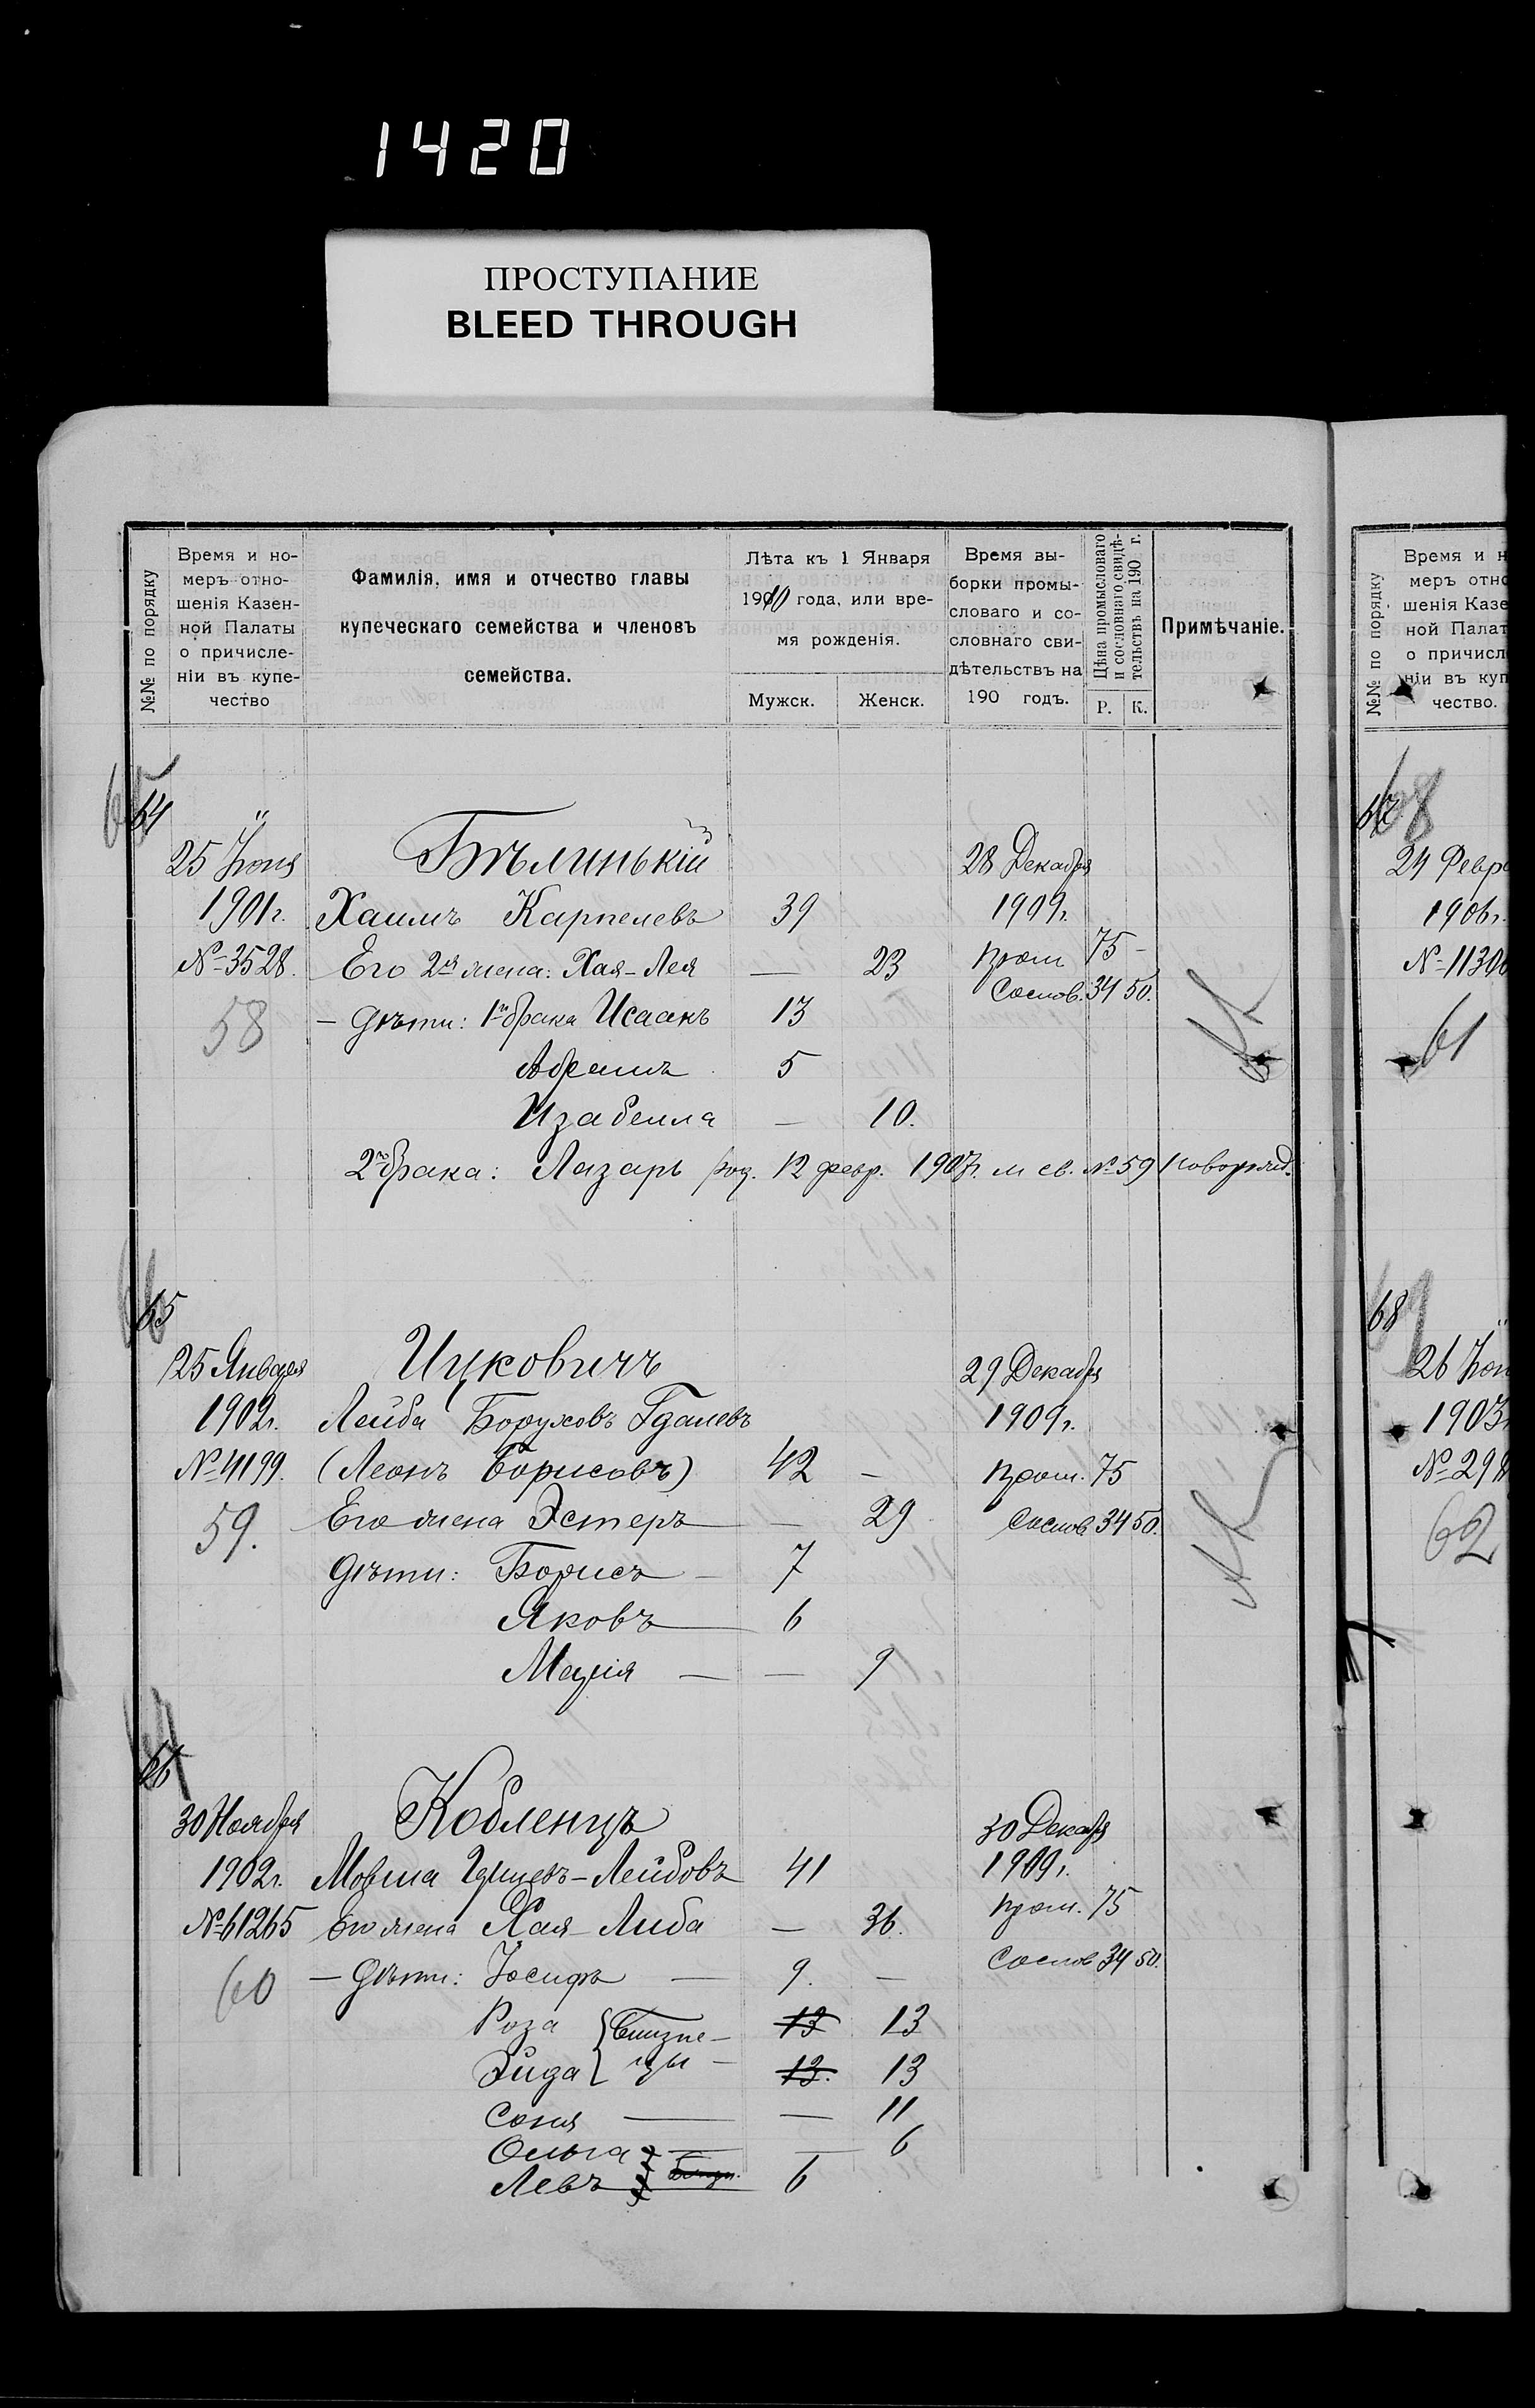 1420
ПРОСТУПАНИЕ
BLEED THROUGH
№№ по порядку
Время и но-
меръ отно-
шенія Казен-
ной Палаты
о причисле-
ніи въ купе-
чество
Фамилія, имя и отчество главы
купеческаго семейства и членовъ
семейства.
Лѣта къ 1 Января
1910 года, или вре-
мя рожденія.
Мужск. Женск.
Время вы-
борки промы-
словаго и со-
словнаго сви-
дѣтельствъ на
190 годъ.
Цѣна промысловаго
и сословнаго свидѣ-
тельствъ на 190 г.
Р. К.
Примѣчаніе.
65
64 "
25 Іюня Бѣлинькій 28 Декабря
1901г. Хаимъ Карпелевъ 39 1909г.
№ 3528. Его 2я жена: Хая-Лея — 23 пром 75 -
Сослов. 34 50.
58 — дѣти: 1го брака Исаакъ 13
Абрамъ 5
Изабелла — 10.
2го брака: Лазарь род. 12 февр. 1907г. м св. № 59
66
65
25 Января Ицковичъ 29 Декабря
1902г. Лейба Боруховъ Гдалевъ 1909г.
№ 4199. (Леонъ Борисовъ) 42 — пром. 75
59. Его жена Эстеръ — 29 Сослов 34 50.
дѣти: Борисъ — 7
Яковъ — 6
Марія — — 9
67
66
30 Ноября Кобленцъ 30 Декабря
1902г. Мовша Гиршевъ-Лейбовъ 41 1909г.
№ 61265 Его жена Хая-Либа — 36. пром. 75
60 — дѣти: Іосифъ — 9. — Сослов 34 50.
Роза {близне— 13 13
Эйда цы — 13. 13
Соня — — 11
Ольга — — 6
Левъ близн. 6
№№ по порядку
Время и н
меръ отно
шенія Казе
ной Палат
о причисл
ніи въ куп
чество.
68
67
24 Февра
1906г.
№ 11306
61
68
26 Іюн
1903
№ 298
62